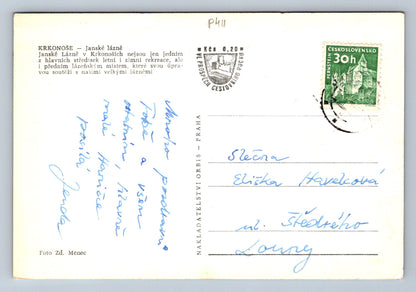 P411
KRKONOŠE – Janské lázně
Janské Lázně v Krkonoších nejsou jen jedním
z hlavních středisek letní i zimní rekreace, ale
i předním lázeňským místem, které svou úpra-
vou soutěží s našimi velkými lázněmi
Kčs 0,20
VE PROSPĚCH CESTOVNÍHO RUCHU
ČESKOSLOVENSKO
30h
PERNŠTEJN
Mnoho pozdravů
Tobě a všem
ostatním, hlavně
malé
posílá
Jenda
NAKLADATELSTVÍ ORBIS – PRAHA
Slečna
Eliška Havelková
ul. Štědrého
Louny
Foto Zd. Menec